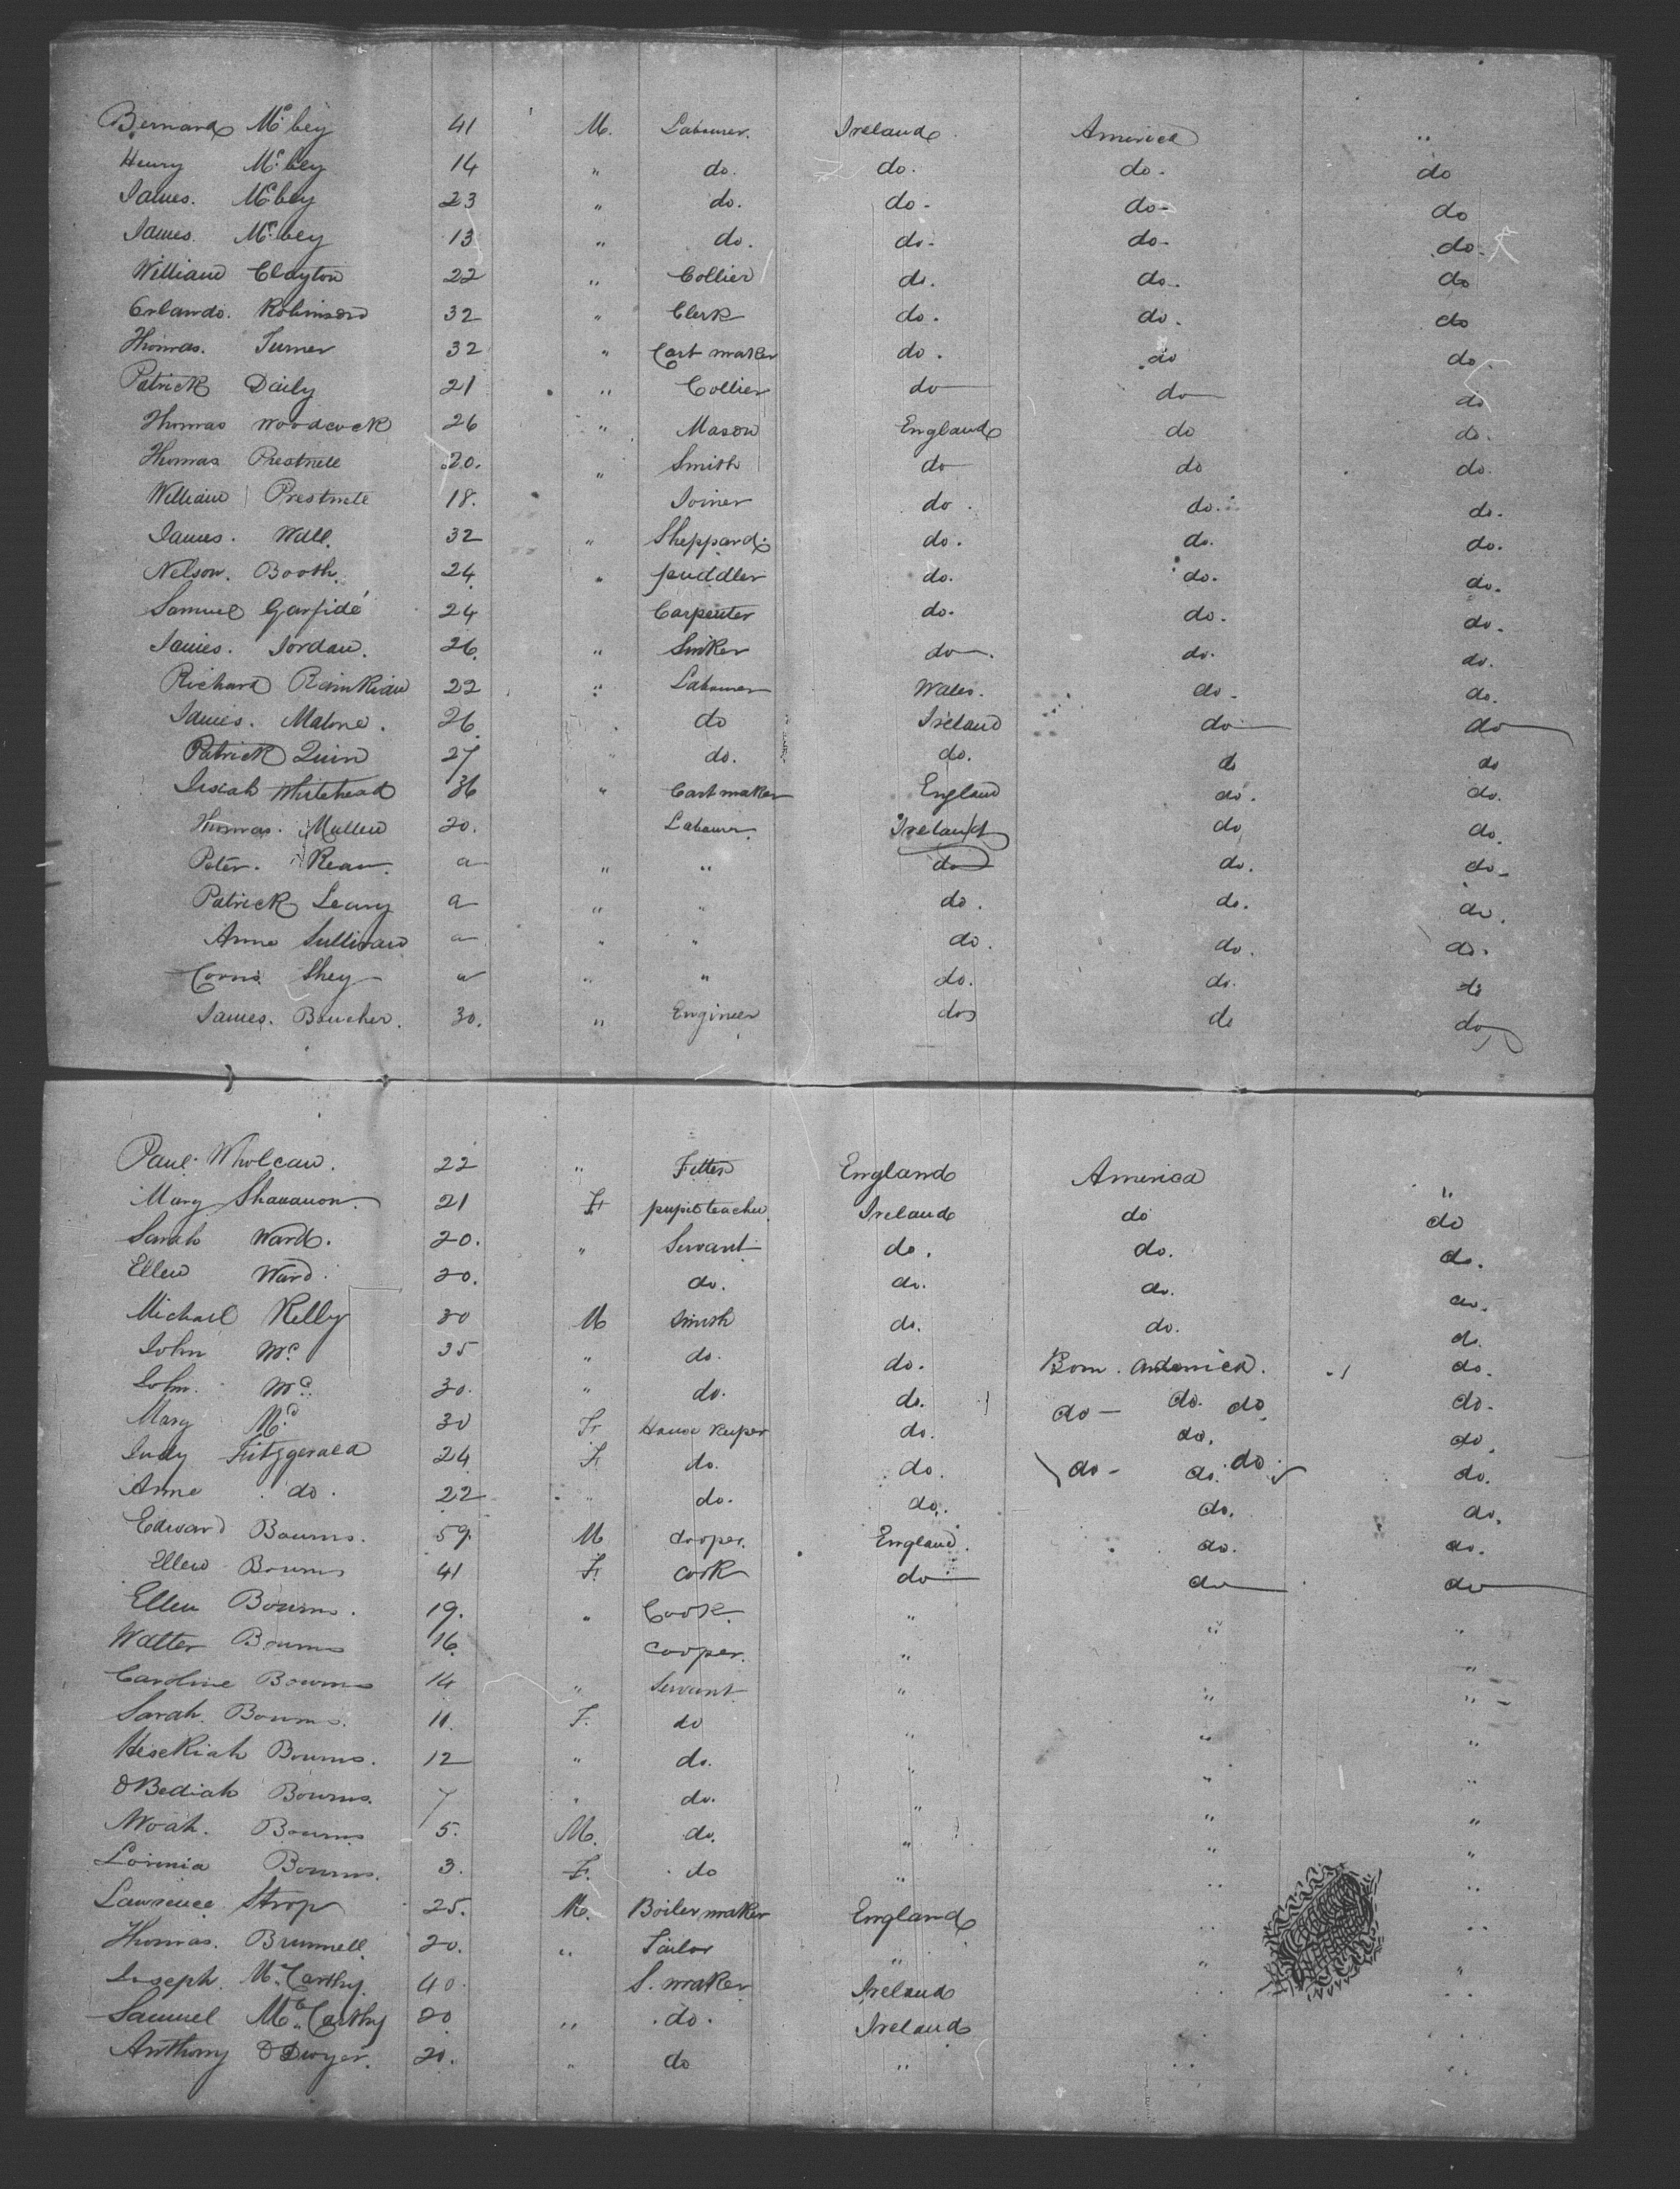 Bernard McBey 41 M. Labourer. Ireland. America "
Henry McBey 14 " do. do. do. do
James. McBey 23 " do. do. do. do
James. McBey 13 " do. do. do. do.
William Clayton 22 " Collier do. do. do
Orlando. Robinson 32 " Clerk do. do. do
Thomas. Turner 32 " Cart maker do. do do.
Patrick Daily 21 " Collier do do do
Thomas Woodcock 26 " Mason England do do.
Thomas 20. " Smith do do do.
William 18. Joiner do. do. do.
James. Wall. 32 " Sheppard. do. do. do.
Nelson. Booth. 24 " puddler do. do. do.
Samuel Garside 24 Carpenter do. do. do.
James. Jordan. 26. " Sinker do. do. do.
Richard 22 " Labourer Wales. do. do.
James. Malone. 26. do Ireland do do
Patrick Quin 27 " do. do. do do
Isiah Whitehead 36 " Cart maker England do. do.
Thomas. Mullen 20. Labourer. Ireland do do.
Peter. Kean. a " " do do. do.
Patrick Leary a " " do. do. do.
Anne Sullivan a " " do. do. do.
Corns. Shey a " " do. do. do
James. Boucher. 30. " Engineer do do do
Paul. 22 " Fitter England America "
Mary Shannon. 21 F pupil teacher. Ireland do do
Sarah Ward. 20. " Servant do. do. do.
Ellen Ward. 20. do. do. do. do.
Michael Kelly 30 M Smith do. do. do.
John Mc. 35 " do. do. Born. America. do.
John. Mc. 30. " do. do. do do. do. do.
Mary Mc. 30 F House keeper do. do. do.
Judy Fitzgerald 24 F do. do. do do. do. do.
Anne do. 22 " do. do. do. do.
Edward Bourns. 59. M Cooper. England. do. do.
Ellen Bourns 41 F. Cook do do do
Ellen Bourns. 19. " Cook. " " "
Walter Bourns 16. Cooper. " "
Caroline Bourns 14 " Servant " " "
Sarah. Bourns. 11. F. do " " "
Hesekiah Bourns. 12 " do. " " "
OBediah Bourns. 7 " do. " " "
Noah. Bourns 5. M. do. " " "
Bourns. 3. F. do " " "
Lawrence Strop 25. M. Boiler maker England " "
Thomas. Brunnell. 20. " Tailor " " "
Joseph. McCarthy. 40. S. maker Ireland " "
Samuel McCarthy 20 " do. Ireland " "
Anthony O Dwyer. 20. " do " " "